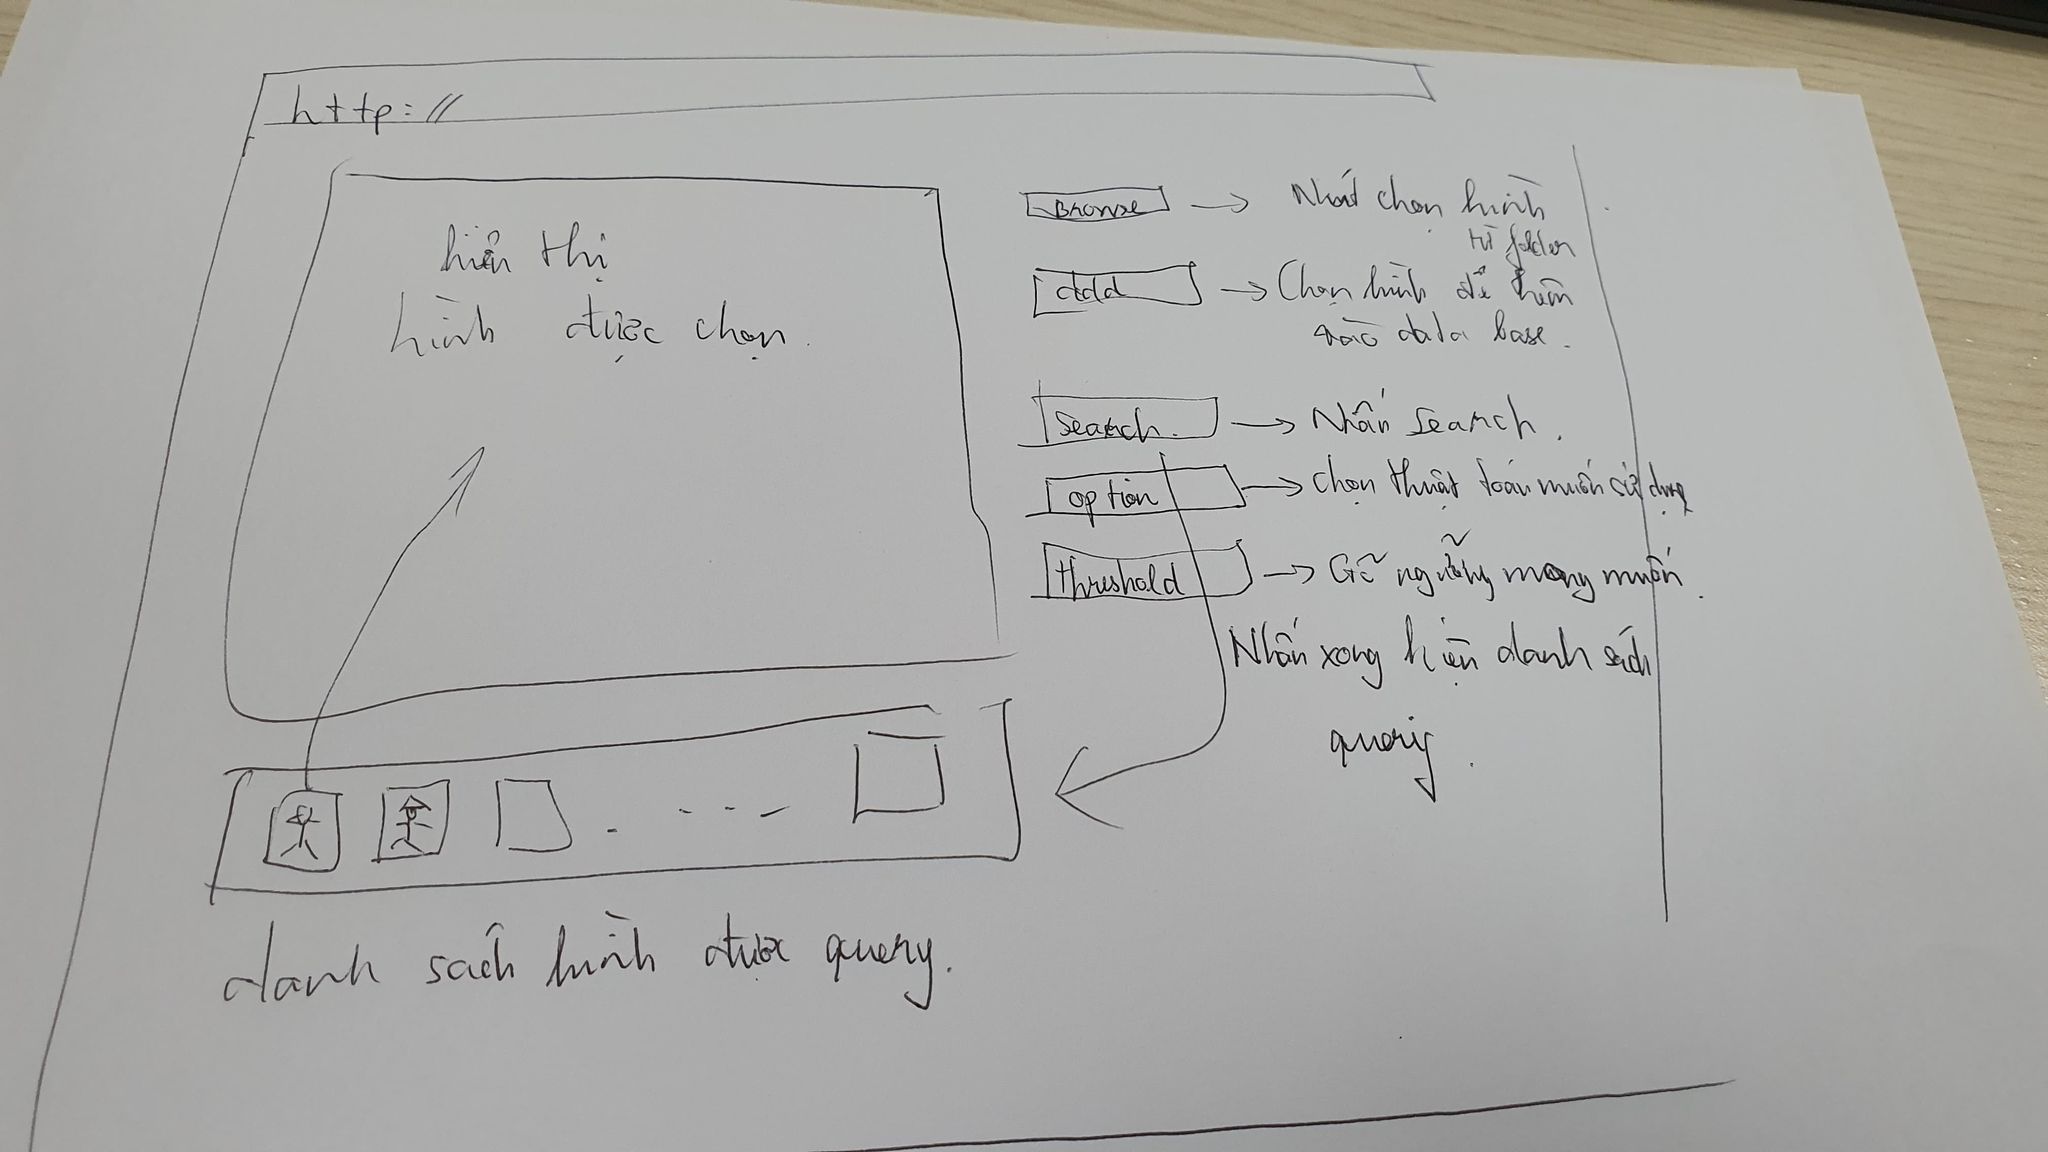 http://
hiển thị
hình được chọn.
Browse → Nhất chọn hình
từ folder
add → Chọn hình để thêm
vào data base.
Search. → Nhấn Search.
option → chọn thuật toán muốn sử dụng
threshold → Gõ ngưỡng mong muốn.
Nhấn xong hiện danh sách
query.
danh sách hình được query.